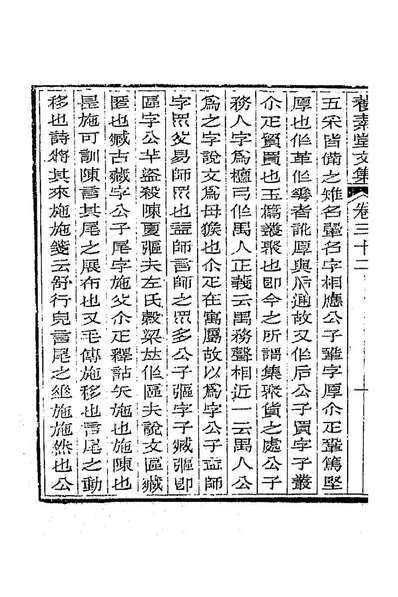 養素堂文集 卷三十二
五采皆備之雉名翬名字相應公子翬字厚尒疋鞏篤堅
厚也作革作翬者訛厚與后通故又作后公子買字子叢
尒疋賈買也玉篇叢聚也即今之所謂集聚貨之處公子
務人字爲檀弓作禺人正義云禺務聲相近一云禺人公
爲之字說文爲母猴也尒疋在寓屬故以爲字公子益師
字眾父易師眾也益師之眾多公子彄字子臧彄即
區字公羊盜殺陳夏彄夫左氏穀梁竝作區夫說文區藏
匿也臧古藏字公子尾字施父尒疋釋詁矢施也施陳也
是施可訓陳言其尾之展布也又毛傳施移也言尾之動
移也詩將其來施施箋云舒行皃言尾之垂施施然也公